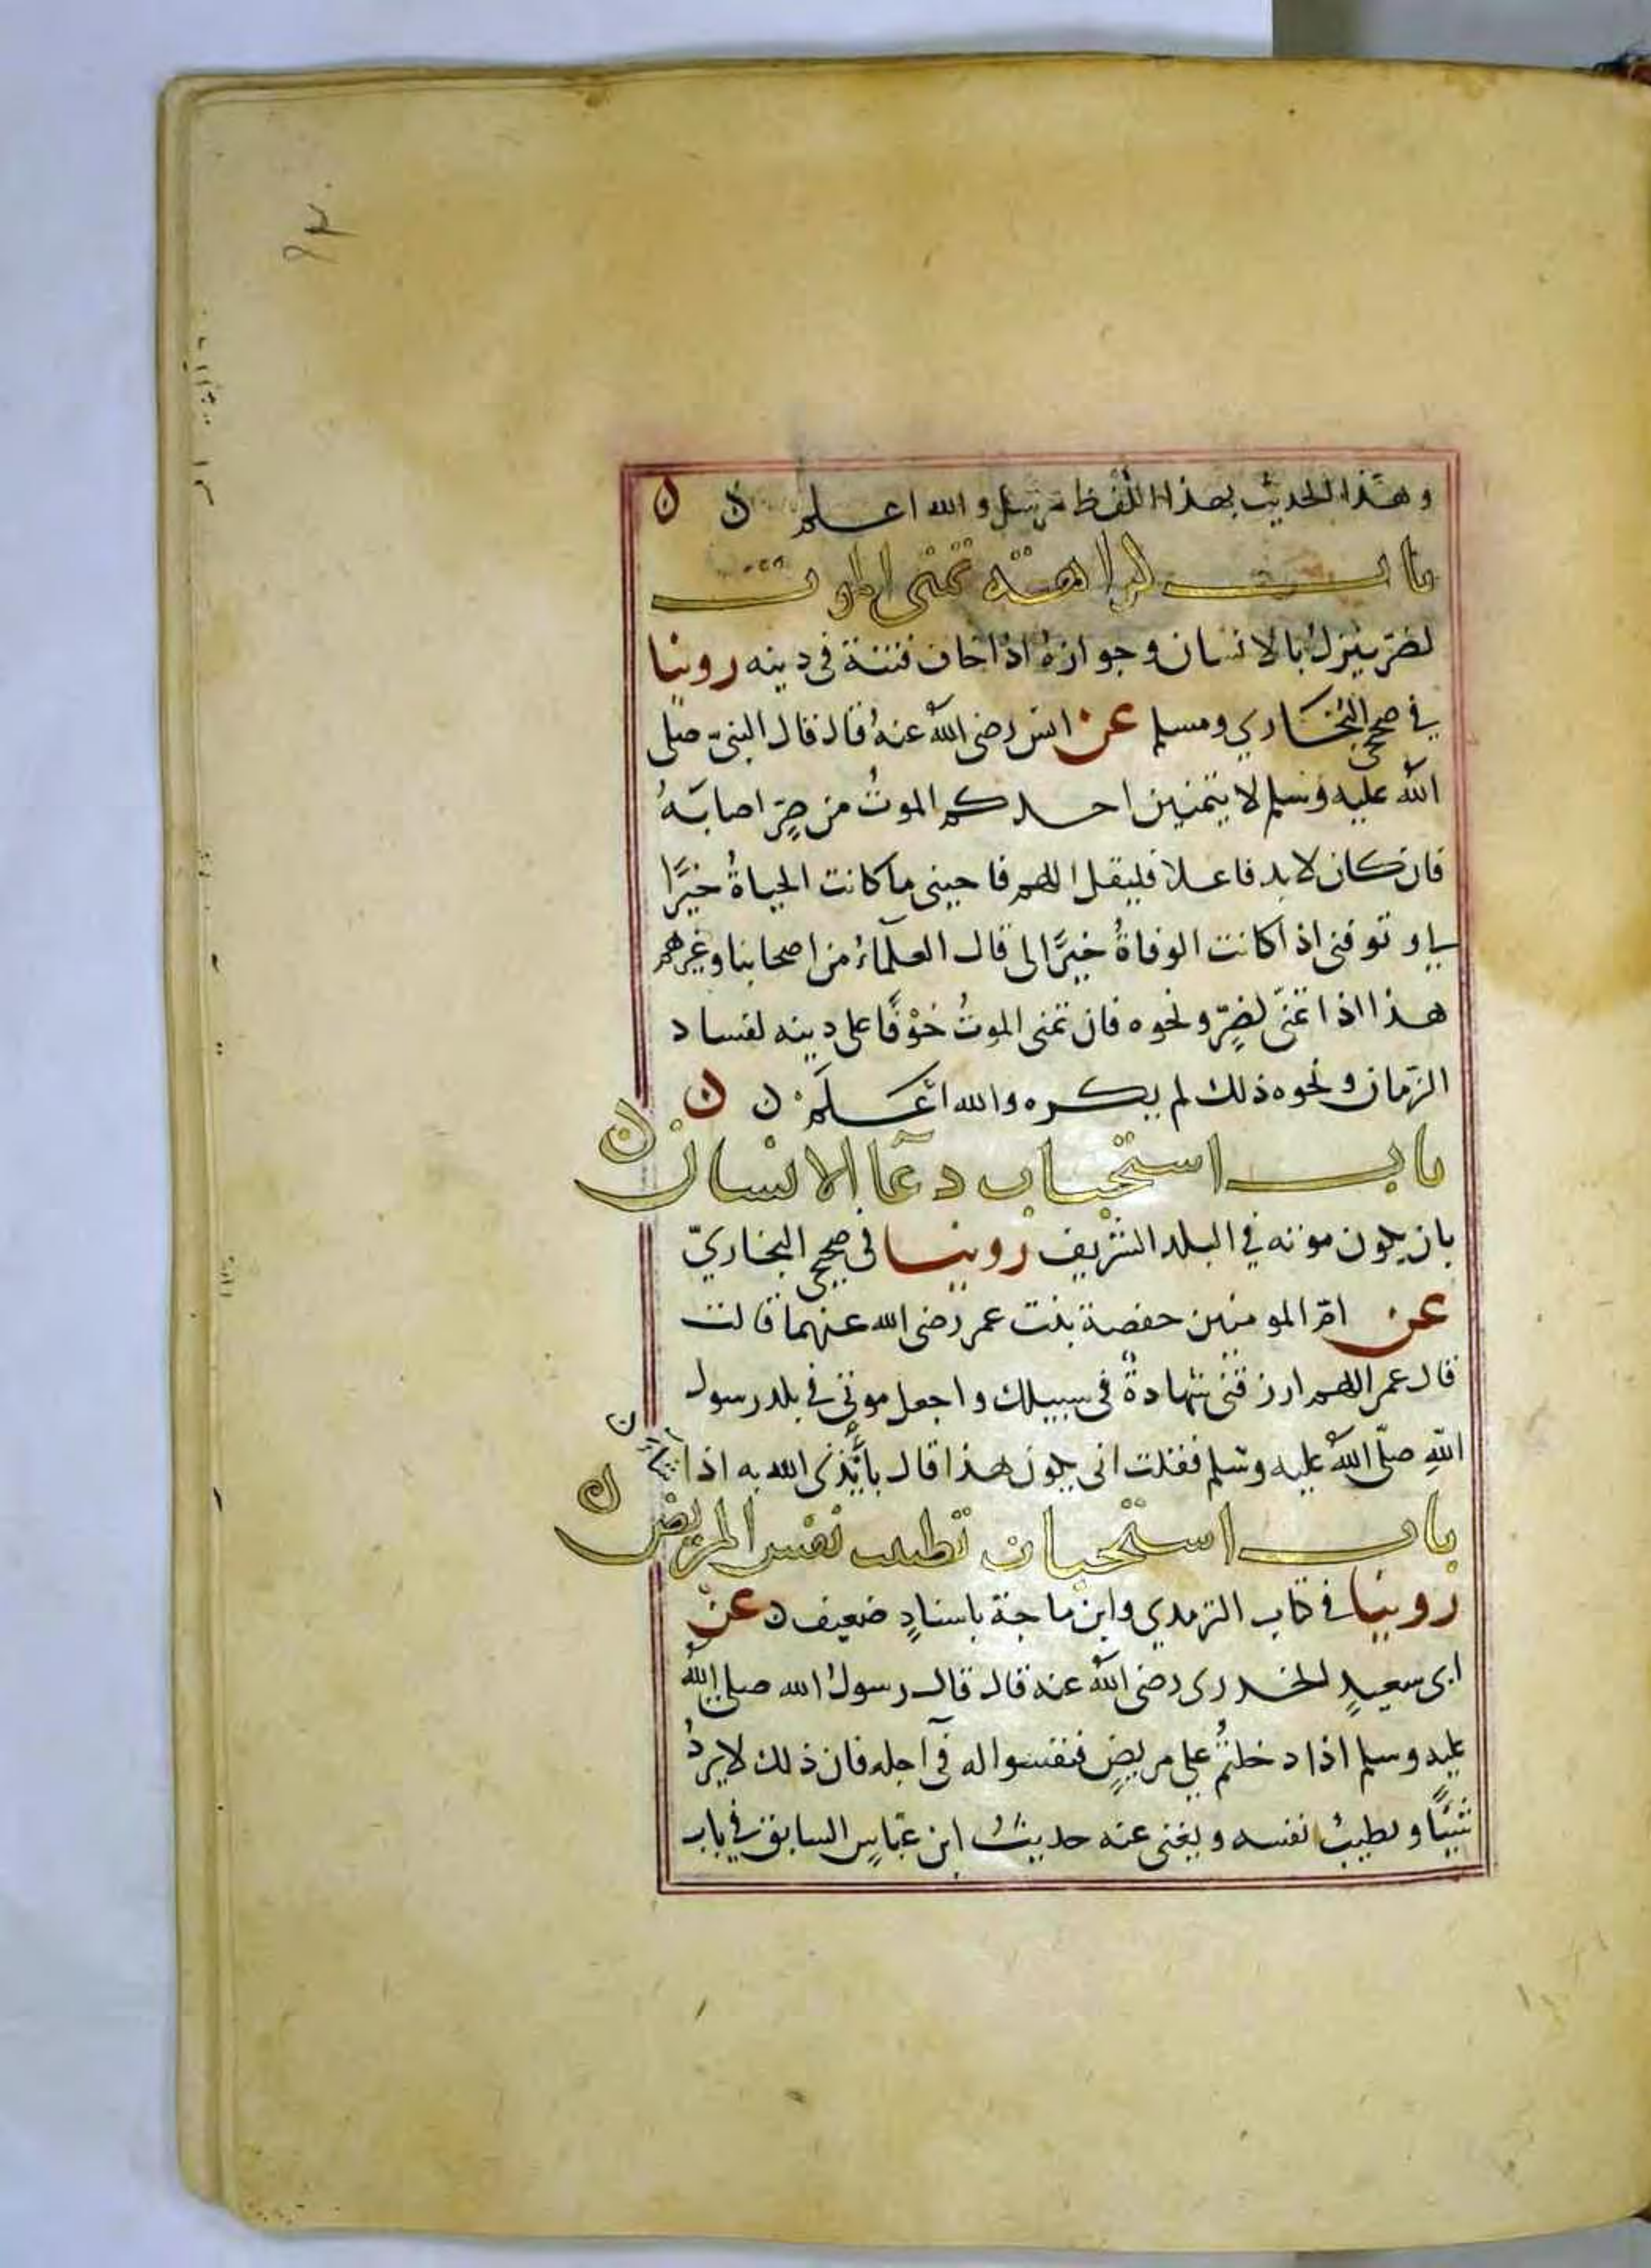 وهذا الحديث بهذا اللفظ مرسل والله اعلم ن ن
باب كراهة تمني الموت
لضر ينزل بالانسان وجوازه اذا خاف فتنة في دينه روينا
في صحيحي البخاري ومسلم عن انس رضي الله عنه قال قال النبي صلى
الله عليه وسلم لا يتمنين احدكم الموت من ضر اصابه
فان كان لا بد فاعلا فليقل اللهم فاحيني ما كانت الحياة خيرا
لي وتوفني اذا كانت الوفاة خيرا لي قال العلماء من اصحابنا وغيرهم
هذا اذا تمنى لضر ونحوه فان تمنى الموت خوفا على دينه لفساد
الزمان ونحوه ذلك لم يكره والله اعلم ن ن
باب استحباب دعآ الانسان ن
بان يكون موته في البلد الشريف روينا في صحيح البخاري
عن ام المومنين حفصة بنت عمر رضي الله عنهما قالت
قال عمر اللهم ارزقني شهادة في سبيلك واجعل موتي في بلد رسول
الله صلى الله عليه وسلم فقلت انى يكون هذا قال يأتيني الله به اذا شاء ن
باب استحباب تطييب نفس المريض ن
روينا في كتاب الترمدي وابن ماجة باسناد ضعيف ن عن
ابي سعيد الخدري رضي الله عنه قال قال رسول الله صلى الله
عليه وسلم اذا دخلتم على مريض فنفسوا له في اجله فان ذلك لا يرد
شيئا ويطيب نفسه ويغني عنه حديث ابن عباس السابق في باب